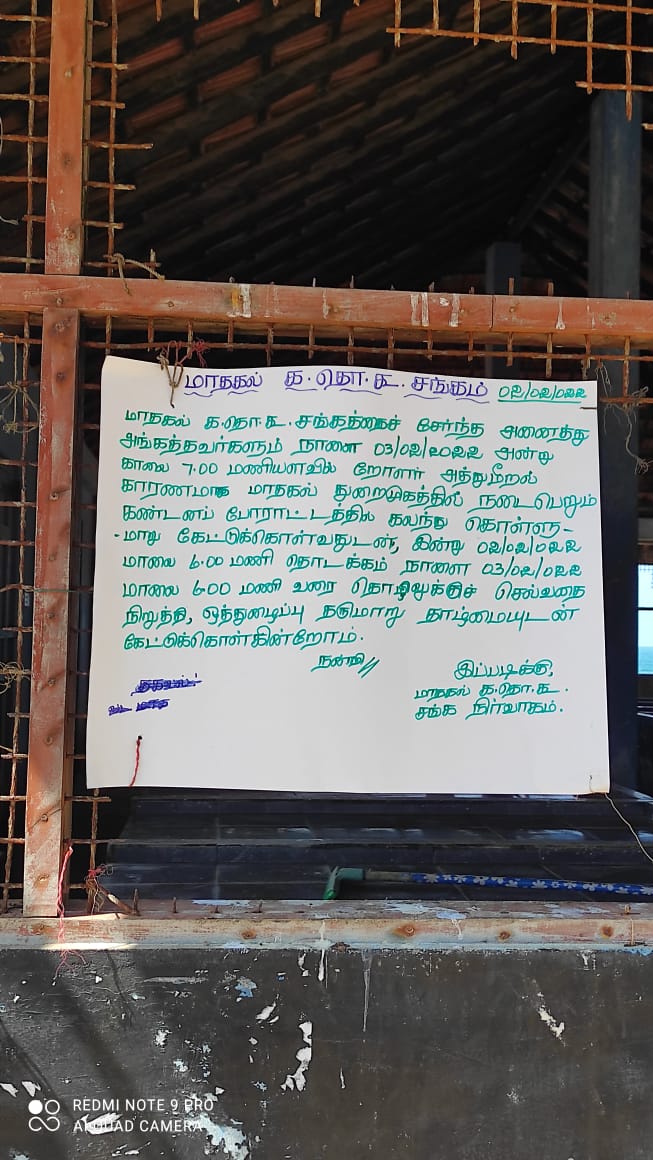 மாதகல் க.தொ.கூ.சங்கம் 02/02/022
மாதகல் க.தொ.கூ.சங்கத்தைச் சேர்ந்த அனைத்து
அங்கத்தவர்களும் நாளை 03/02/2022 அன்று
காலை 7.00 மணியளவில் றோளர் அத்துமீறல்
காரணமாக மாதகல் துறைமுகத்தில் நடைபெறும்
கண்டனப் போராட்டத்தில் கலந்து கொள்ளு-
-மாறு கேட்டுக்கொள்வதுடன், இன்று 02/02/022
மாலை 6.00 மணி தொடக்கம் நாளை 03/02/022
மாலை 6.00 மணி வரை தொழிலுக்குச் செல்வதை
நிறுத்தி, ஒத்துழைப்பு தருமாறு தாழ்மையுடன்
கேட்டுக்கொள்கின்றோம்.
நன்றி//
இப்படிக்கு,
மாதகல் க.தொ.கூ.
சங்க நிர்வாகம்.
REDMI NOTE 9 PRO
AI QUAD CAMERA